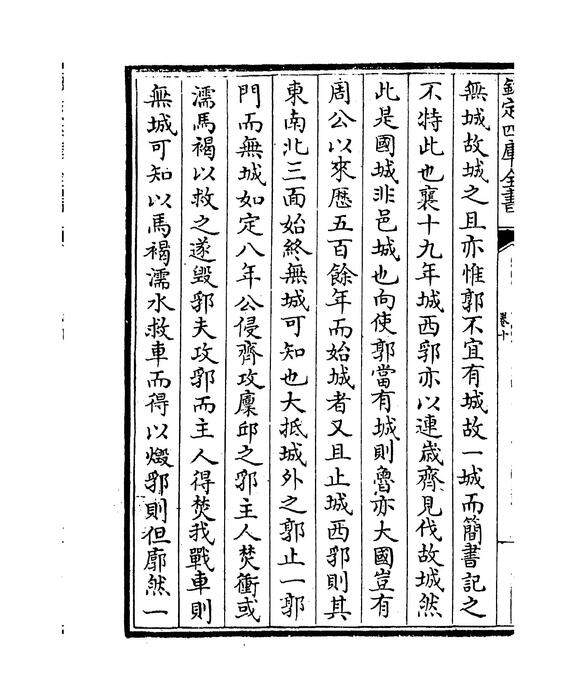 欽定四庫全書
卷十
無城故城之且亦惟郭不宜有城故一城而簡書記之
不特此也襄十九年城西郛亦以連歲齊見伐故城然
此是國城非邑城也向使郭當有城則魯亦大國豈有
周公以來歷五百餘年而始城者又且止城西郛則其
東南北三面始終無城可知也大抵城外之郭止一郭
門而無城如定八年公侵齊攻廩邱之郛主人焚衝或
濡馬褐以救之遂毀郛夫攻郛而主人得焚我戰車則
無城可知以馬褐濡水救車而得以燬郛則但廓然一